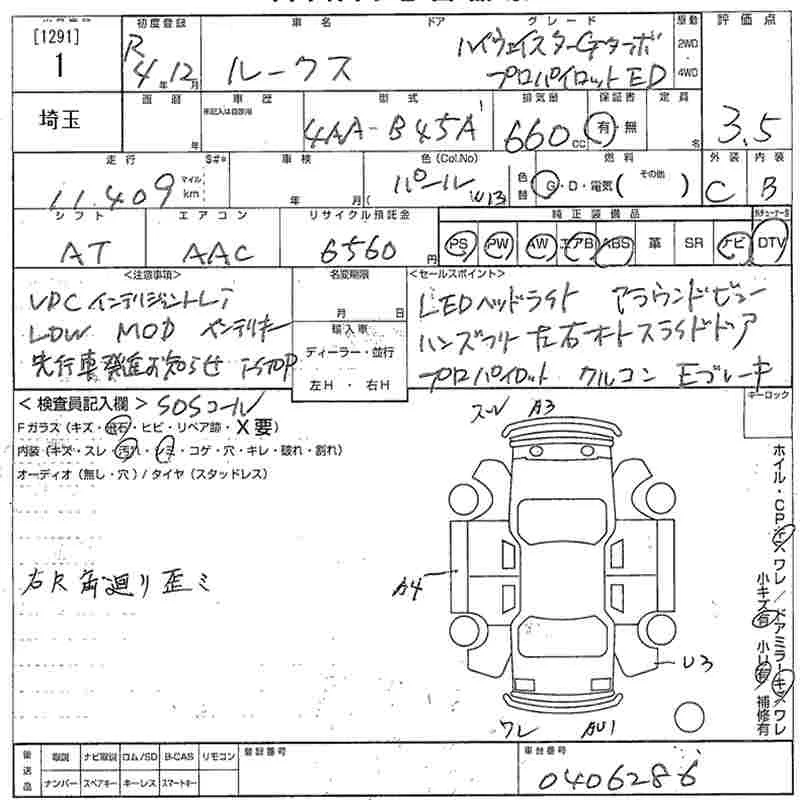 [1291]
1
埼玉
初度登録
R 4年12月
車名
ルークス
ドア
グレード
ハイウェイスターGターボ
プロパイロットED
原動
2WD
・
4WD
評価点
3.5
画暦
年
車歴
未記入は自家用
型式
4AA-B45A
排気量
660cc
保証書
有・無
定員
名
走行
11,409
マイル
km
S#*
車検
年 月(
色(Col.No)
パール
W13
色替
燃料
G・D・電気( その他 )
外装
C
内装
B
シフト
AT
エアコン
AAC
リサイクル預託金
6560円
純正装備品
PS PW AW エアB ABS 革 SR ナビ
DTV
<注意事項>
VDC インテリジェントLI
LDW MOD インテリキー
先行車発進お知らせ I-STOP
名変期限
月 日
輸入車
ディーラー・並行
左H ・ 右H
<セールスポイント>
LEDヘッドライト アラウンドビュー
ハンズフリー左右オートスライドドア
プロパイロット クルコン Eブレーキ
<検査員記入欄> SOSコール
Fガラス(キズ・飛石・ヒビ・リペア跡・X要)
内装(キズ・スレ・汚れ・シミ・コゲ・穴・キレ・破れ・割れ)
オーディオ(無し・穴)/タイヤ(スタッドレス)
キーロック
スレ A3
右R角廻り歪ミ
A4
U3
ワレ AU1
ホイル・CPキズ・ワレ/ドアミラーキズ・ワレ
小キズ有 小U有/補修有
後送品
取説 ナビ取説 ロム/SD B-CAS リモコン
ナンバー スペアキー キーレス スマートキー
登録番号
車台番号
0406286